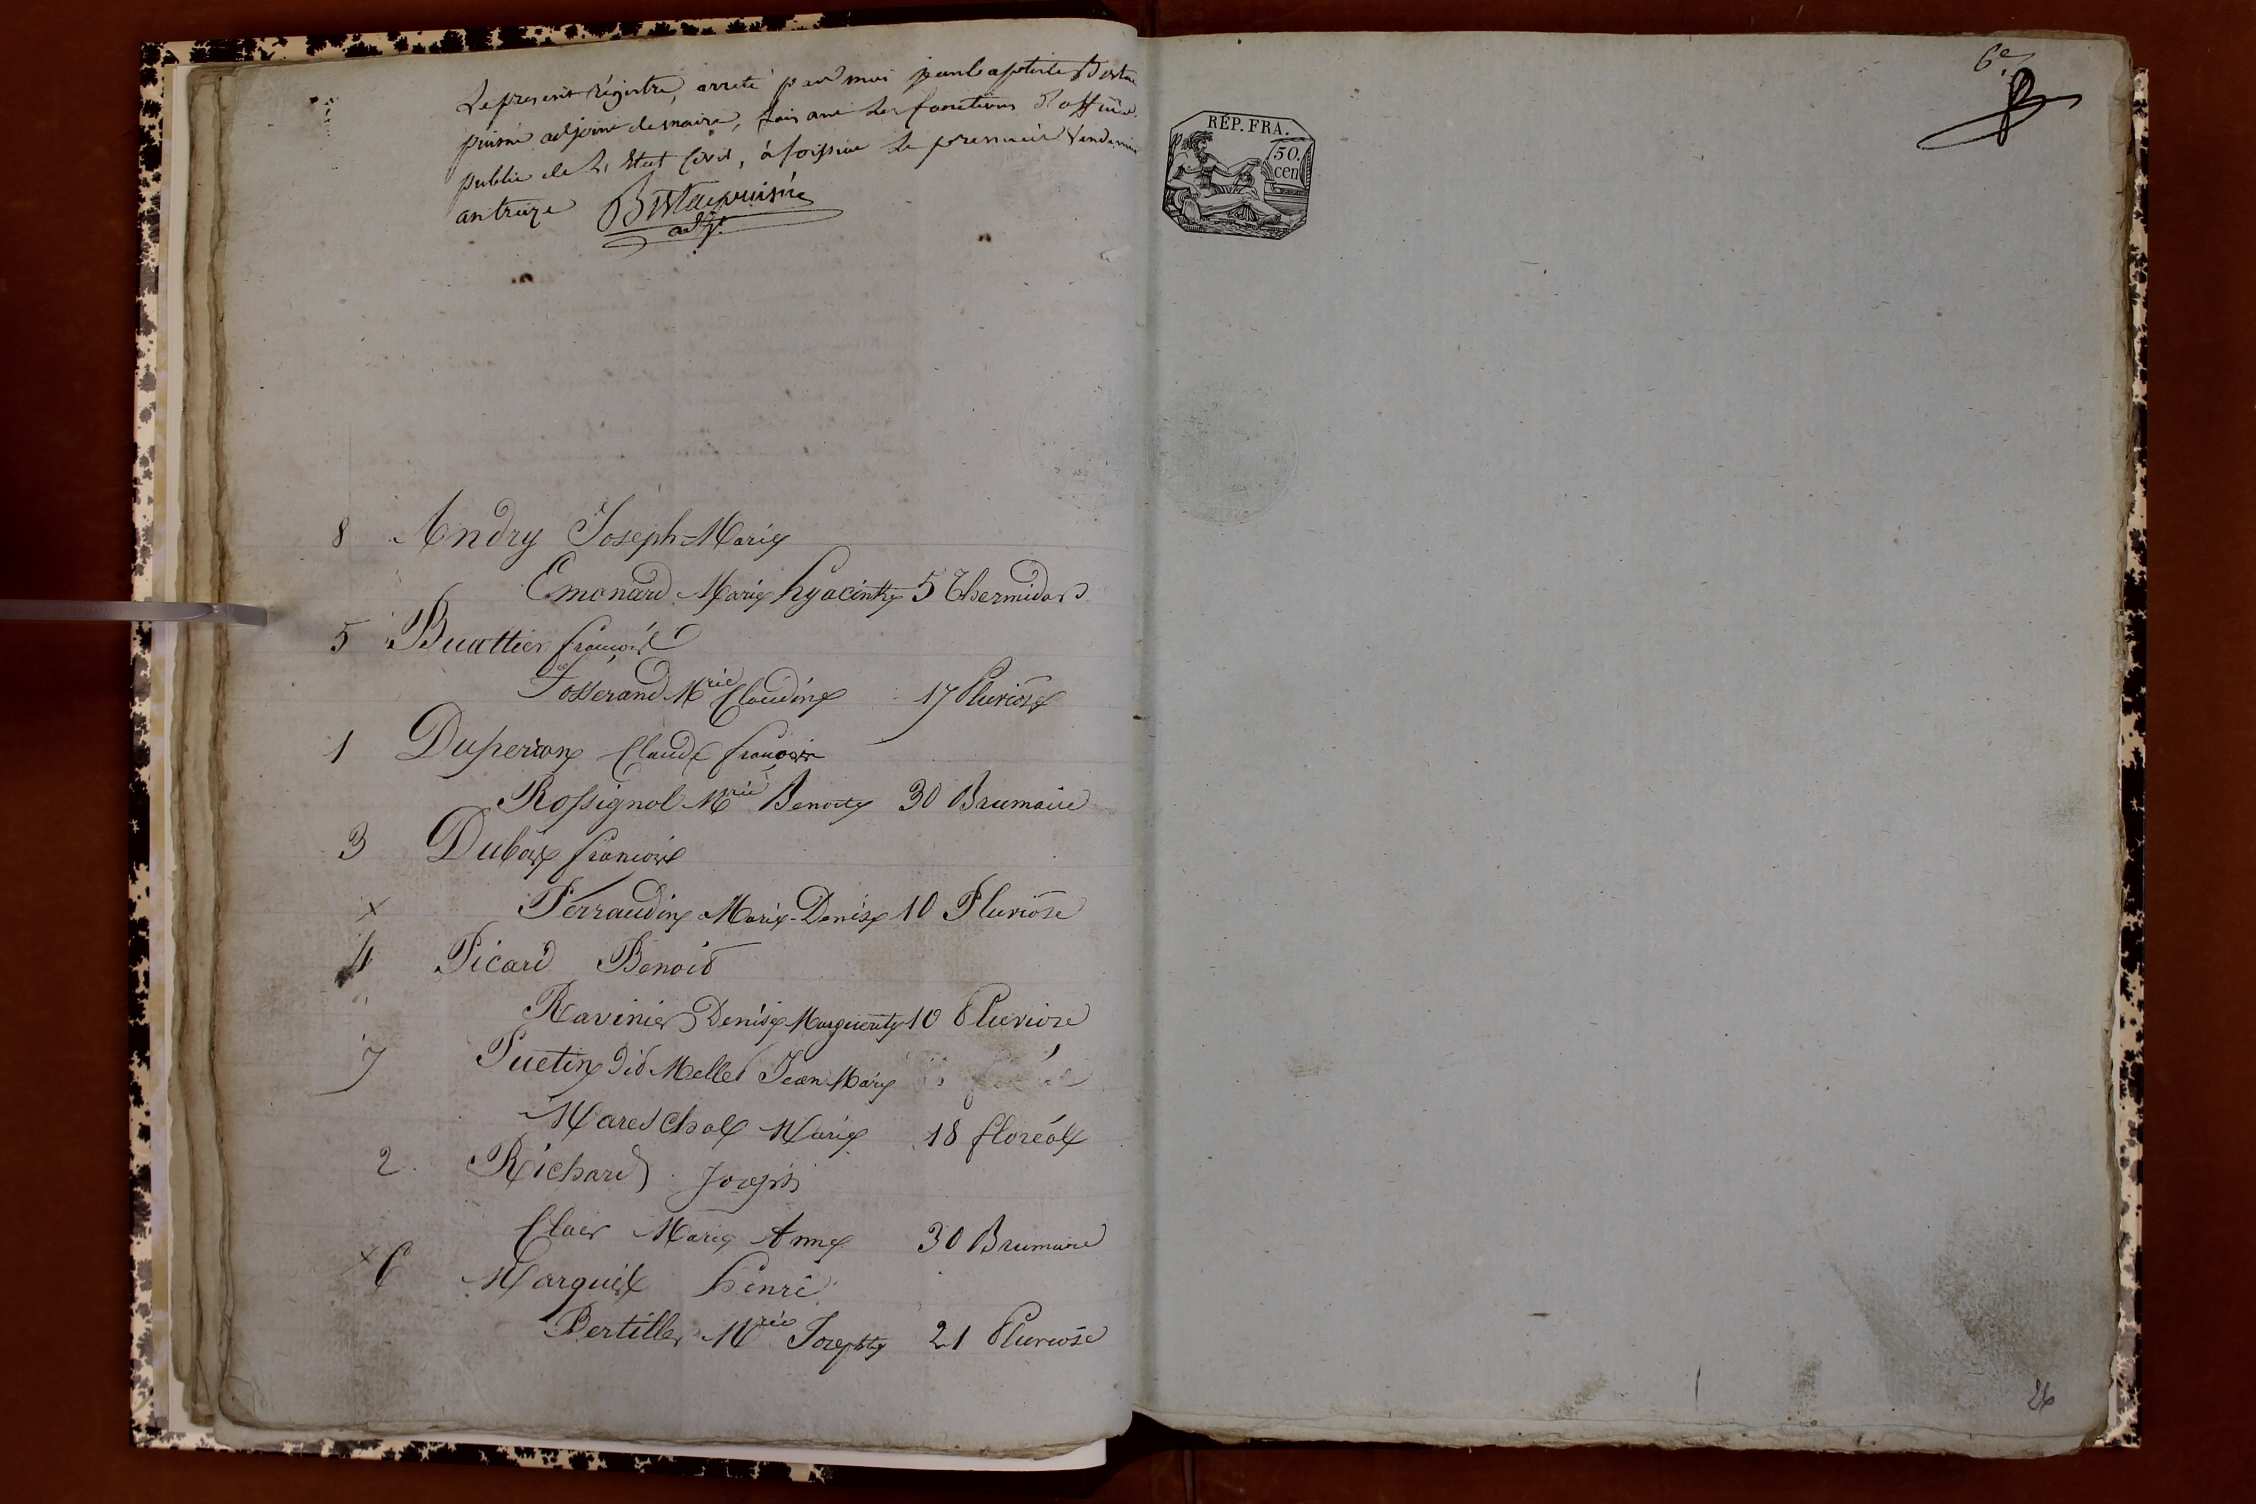 Le present régistre, arreté par moi jeanbaptiste
puisné adjoint demaire, faisant les fonctions d'officier
public de l'Etat Civil, à foissiat le premier Vendemiaire
an treize
adjt
8 Andry Joseph Marie
Emonard Marie hyacinthe 5 Thermidor
5 Buattier françois
Josserand Mrie Claudine 17 Pluviose
1 Duperron Claude françois
Rossignol Mrie Benoite 30 Brumaire
3 Dubois françois
x Perraudin Marie-Denise 10 Pluviose
4 Picard Benoit
Ravinier Denise Marguerite 10 Pluviose
7 Puetin dit Mellet Jean Marie
Mareschal Marie 18 floréal
2 Richard Joseph
Clair Marie Anne 30 Brumaire
x 6 Marguis henri
Bertillet Mrie Josephte 21 Pluviose
6e
RÉP. FRA.
50.
cen